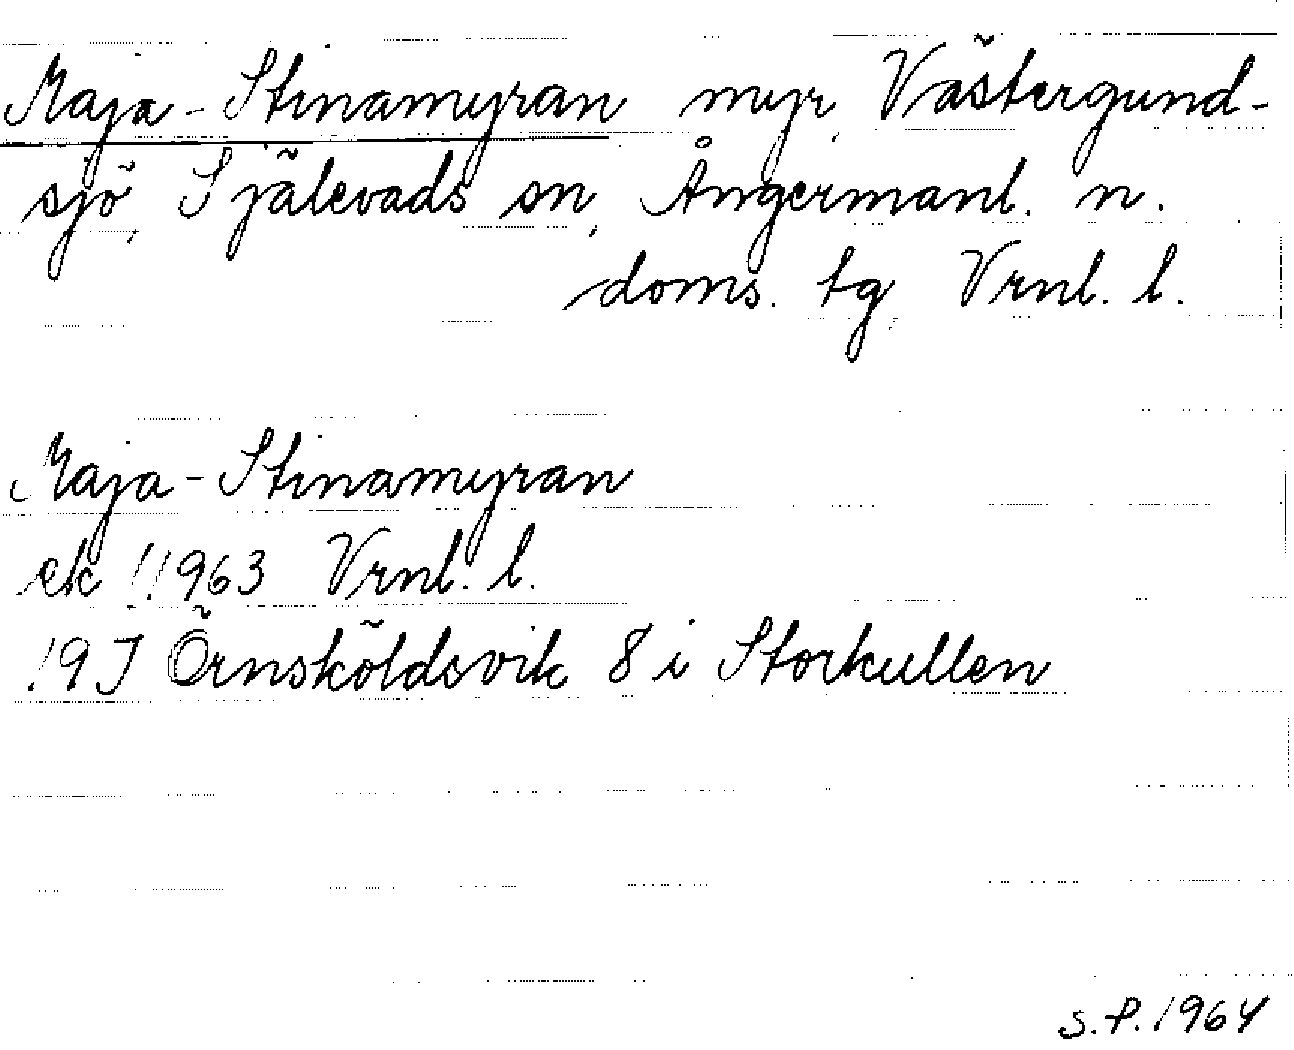 Maja-Stinamyran myr, Västergund-
sjö, Själevads sn, Ångermanl. n.
doms. tg, Vrnl. l.
Maja-Stinamyran
ek 11963 Vrnl. l.
19J Örnsköldsvik 8 i Storkullen
S.P. 1964